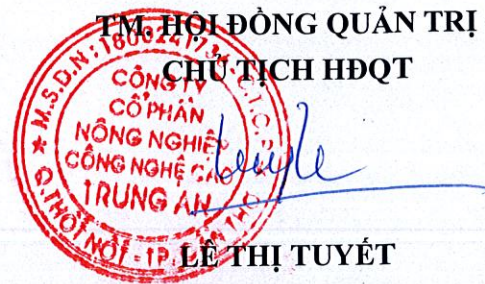 TM. HỘI ĐỒNG QUẢN TRỊ
CHỦ TỊCH HĐQT
M.S.D.N: 1800241736 - C.T.C.P
CÔNG TY
CỔ PHẦN
NÔNG NGHIỆP
CÔNG NGHỆ CAO
TRUNG AN
Q. THỐT NỐT - TP. CẦN THƠ
LÊ THỊ TUYẾT